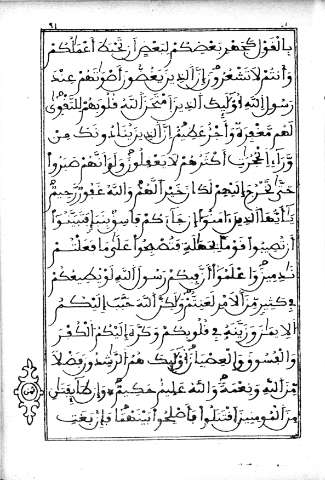 بالقول كجهر بعضكم لبعض أن تحبط أعملكم
وأنتم لا تشعرون إن الذين يغضون أصوتهم عند
رسول الله أوليك الذين امتحن الله قلوبهم للتقوى
لهم مغفرة وأجر عظيم إن الذين ينادونك من
وراء الحجرت أكثرهم لا يعقلون ولو أنهم صبروا
حتى تخرج إليهم لكان خيرا لهم والله غفور رحيم
يأيها الذين ءامنوا إن جاءكم فاسق بنبإ فتبينوا
أن تصيبوا قوما بجهلة فتصبحوا على ما فعلتم
ندمين واعلموا أن فيكم رسول الله لو يطيعكم
في كثير من الأمر لعنتم ولكن الله حبب إليكم
الايمن وزينه في قلوبكم وكره إليكم الكفر
والفسوق والعصيان أوليك هم الرشدون فضلا
من الله ونعمة والله عليم حكيم وإن طايفتن
من المومنين اقتتلوا فأصلحوا بينهما فإن بغت